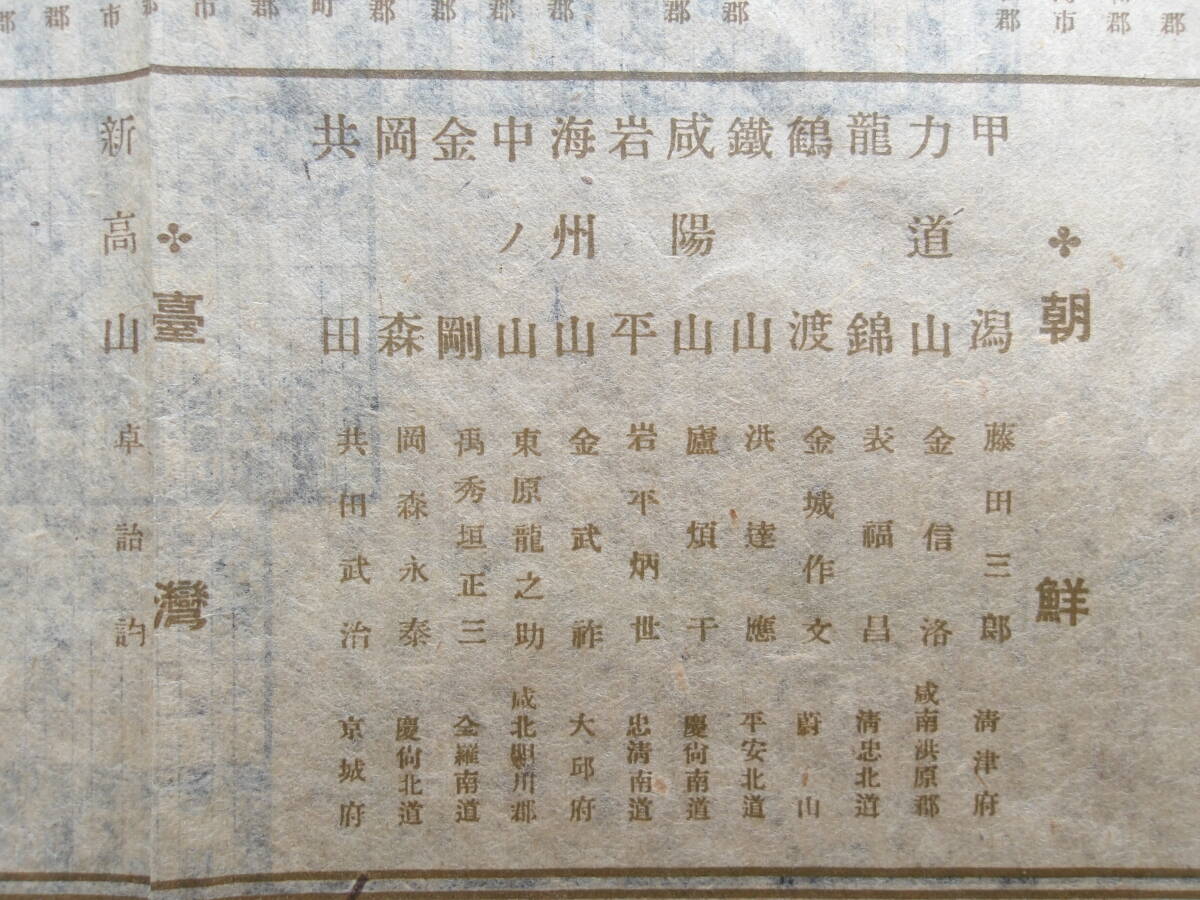 郡
郡
市
郡
郡
市
郡
町
郡
郡
郡
郡
郡
郡
朝鮮
甲潟 藤田三郎 清津府
力道山 金信洛 咸南洪原郡
龍錦 表福昌 清忠北道
鶴渡 金城作文 蔚山
鐵山 洪達應 平安北道
咸陽山 廬煩干 慶尙南道
岩平 岩平炳世 忠清南道
海州山 金武祚 大邱府
中ノ山 東原龍之助 咸北明川郡
金剛 禹秀垣正三 全羅南道
岡森 岡森永泰 慶尙北道
共田 共田武治 京城府
臺灣
新高山 卓詒訽